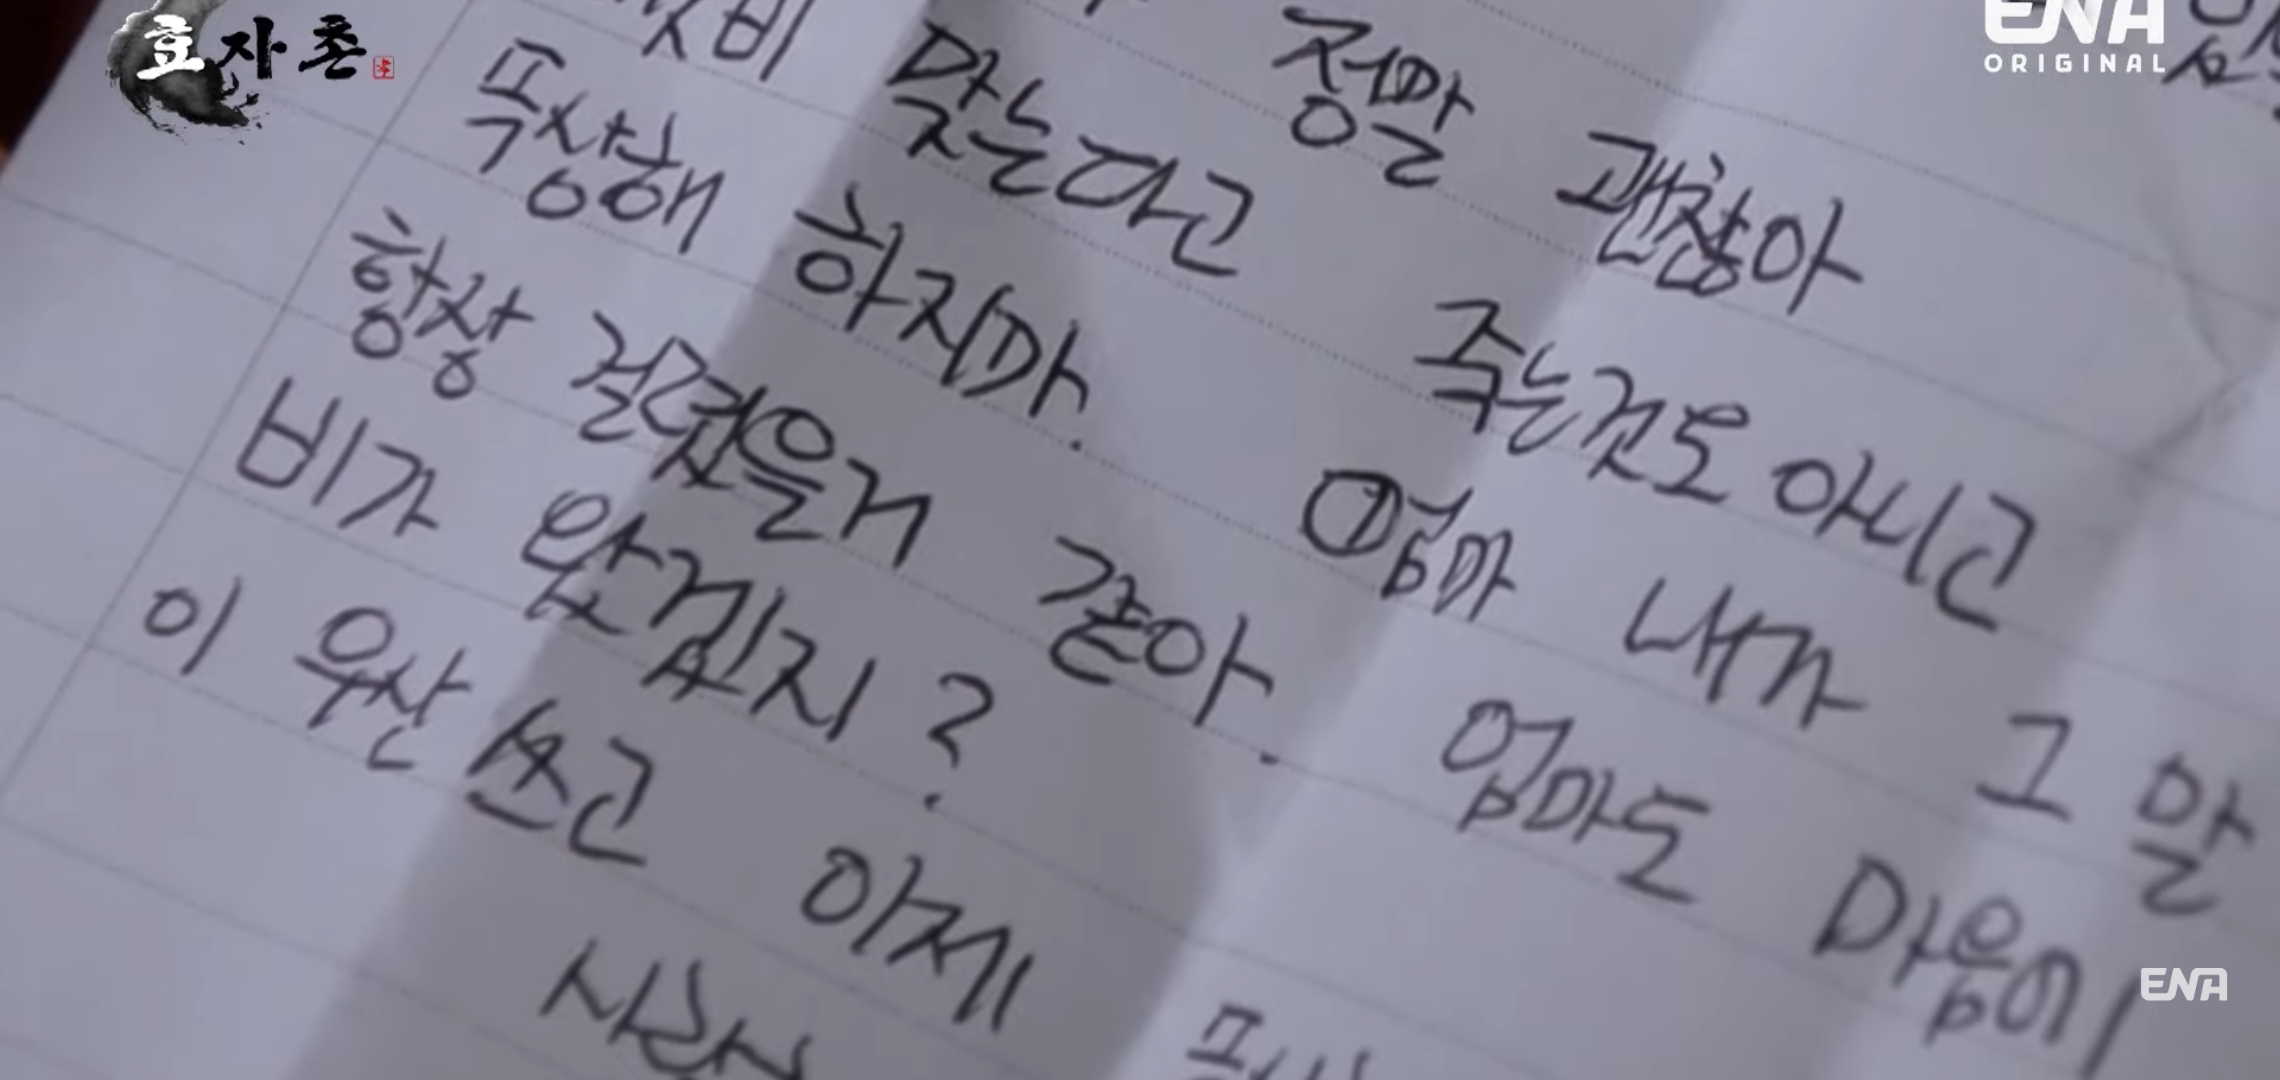 효자촌
ENA
ORIGINAL
정말 괜찮아
맞는다고 죽는것도 아니고
속상해 하지마. 엄마 내가 그 말
항상 걸렸을거 같아. 엄마도 마음이
비가 왔겠지?
이 우산 쓰고
ENA